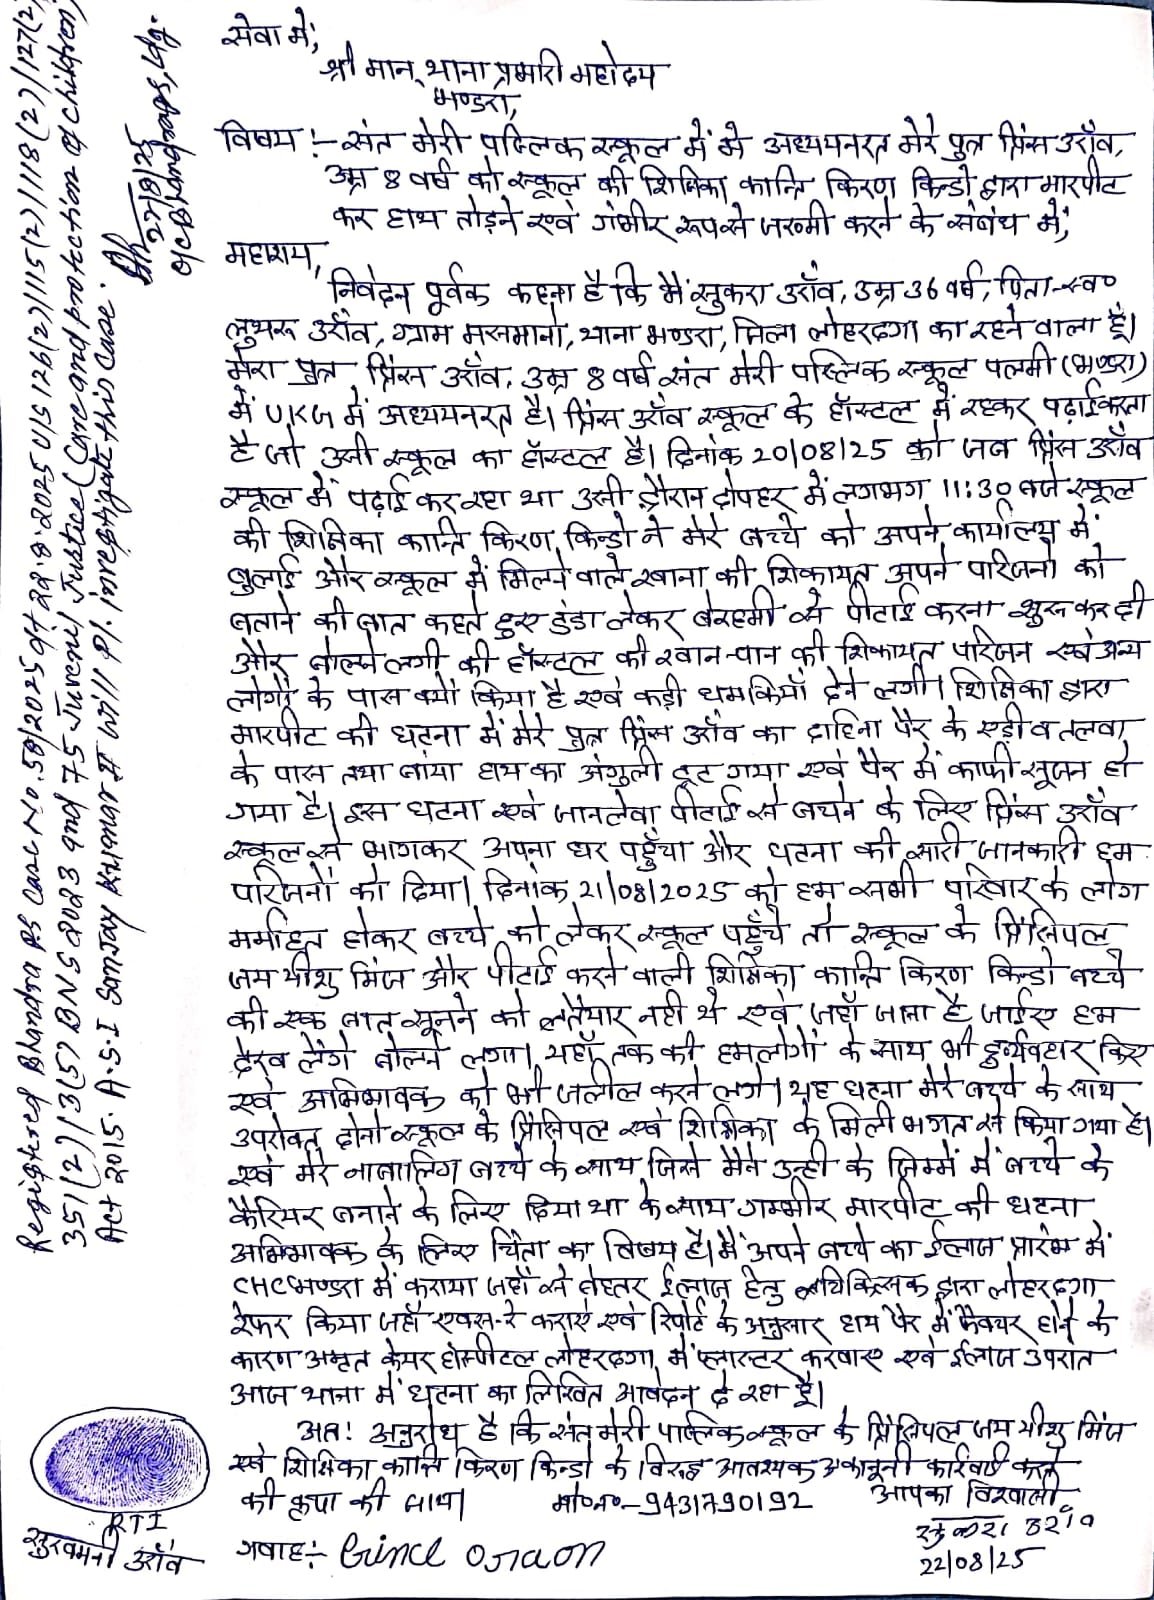 सेवा में,
श्रीमान् थाना प्रभारी महोदय
भण्डरा,
विषय :- संत मेरी पब्लिक स्कूल में मे अध्ययनरत मेरे पुत्र प्रिंस उराँव,
उम्र 8 वर्ष को स्कूल की शिक्षिका कान्ति किरण किन्डो द्वारा मारपीट
कर हाथ तोड़ने एवं गंभीर रूप से जख्मी करने के संबंध में,
महाशय,
निवेदन पूर्वक कहना है कि मैं सुकरा उराँव, उम्र 36 वर्ष, पिता-स्व०
उराँव, ग्राम मसमानो, थाना भण्डरा, जिला लोहरदगा का रहने वाला हूँ।
मेरा पुत्र प्रिंस उराँव, उम्र 8 वर्ष संत मेरी पब्लिक स्कूल पलमी (भण्डरा)
में UKG में अध्ययनरत है। प्रिंस उराँव स्कूल के हॉस्टल में रहकर पढ़ाई करता
है जो उसी स्कूल का हॉस्टल है। दिनांक 20/08/25 को जब प्रिंस उराँव
स्कूल में पढ़ाई कर रहा था उसी दौरान दोपहर में लगभग 11:30 बजे स्कूल
की शिक्षिका कान्ति किरण किन्डो ने मेरे बच्चे को अपने कार्यालय में
बुलाई और स्कूल में मिलने वाले खाना की शिकायत अपने परिजनो को
बताने की बात कहते हुए डंडा लेकर बेरहमी से पीटाई करना शुरू कर दी
और बोलने लगी की हॉस्टल की खान-पान की शिकायत परिजन एवं अन्य
लोगों के पास क्यों किया है एवं कड़ी धमकियाँ देने लगी। शिक्षिका द्वारा
मारपीट की घटना में मेरे पुत्र प्रिंस उराँव का दाहिना पैर के एड़ी व तलवा
के पास तथा बांया हाथ का अंगुली टूट गया एवं पैर में काफी सूजन हो
गया है। इस घटना एवं जानलेवा पीटाई से बचने के लिए प्रिंस उराँव
स्कूल से भागकर अपना घर पहुँचा और घटना की सारी जानकारी हम
परिजनों को दिया। दिनांक 21/08/2025 को हम सभी परिवार के लोग
मर्माहत होकर बच्चे को लेकर स्कूल पहुँचे तो स्कूल के प्रिंसिपल
जय यीशु मिंज और पीटाई करने वाली शिक्षिका कान्ति किरण किन्डो बच्चे
की एक बात सूनने को तैयार नही थे एवं जहाँ जाना है जाईए हम
देख लेंगे बोलने लगा। यहाँ तक की हमलोगों के साथ भी दुर्व्यवहार किए
एवं अभिभावक को भी जलील करने लगे। यह घटना मेरे बच्चे के साथ
उपरोक्त दोनो स्कूल के प्रिंसिपल एवं शिक्षिका के मिली भगत से किया गया है।
एवं मेरे नाबालिग बच्चे के साथ जिसे मैने उन्ही के जिम्में में बच्चे के
कैरियर बनाने के लिए दिया था के साथ गम्भीर मारपीट की घटना
अभिभावक के लिए चिंता का विषय है। मैं अपने बच्चे का ईलाज प्रारंभ में
CHC भण्डरा में कराया जहाँ से बेहतर ईलाज हेतु चिकित्सक द्वारा लोहरदगा
रेफर किया जहाँ एक्स-रे कराए एवं रिपोर्ट के अनुसार हाथ पैर में फ्रैक्चर होने के
कारण अमृत केयर हॉस्पीटल लोहरदगा में प्लास्टर करवाए एवं ईलाज उपरांत
आज थाना में घटना का लिखित आवेदन दे रहा हूँ।
अतः अनुरोध है कि संत मेरी पब्लिक स्कूल के प्रिंसिपल जय यीशु मिंज
एवं शिक्षिका कान्ति किरण किन्डो के विरुद्ध आवश्यक कानूनी कार्रवाई करने
की कृपा की जाय।
मो०न०-9431790192
आपका विश्वासी
सुकरा उराँव
22/08/25
गवाह :- Prince Oraon
RTI
सुखमनी उराँव
Registered Bhandra P.S Case No. 58/2025 dt 22.8.2025 U/S 126(2)/115(2)/118(2)/127(2)
351(2)/3(5) BNS 2023 and 75 Juvenil Justice (Care and protection of children)
Act 2015. A.S.I Sanjay Kumar will Pl. investigate this case.
22/8/25
O/C Bhandra P.S, Ldg.